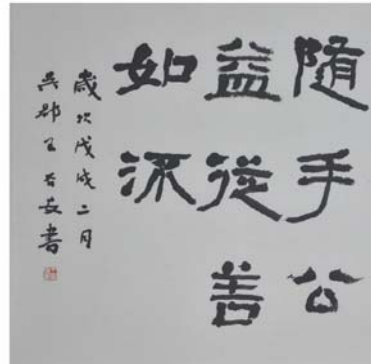 随手公
益從善
如流
歲次戊戌二月
吳郡王谷安書